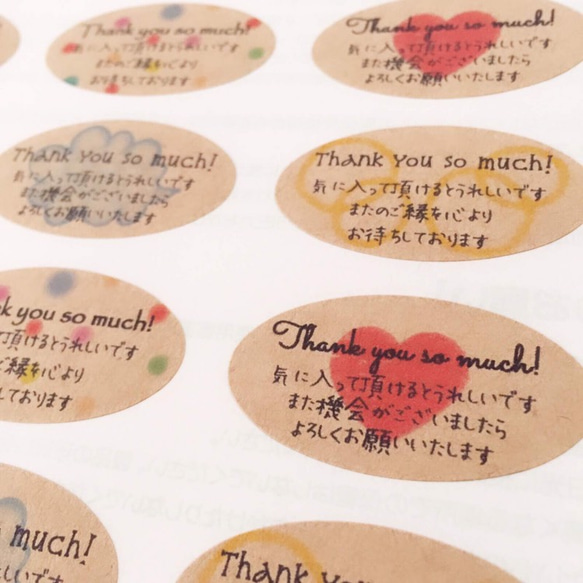 Thank you so much!
気に入って頂けるとうれしいです
またのご縁を心より
お待ちしております
Thank you so much!
気に入って頂けるとうれしいです
また機会がございましたら
よろしくお願いいたします
Thank you so much!
気に入って頂けるとうれしいです
また機会がございましたら
よろしくお願いいたします
Thank you so much!
気に入って頂けるとうれしいです
またのご縁を心より
お待ちしております
k you so much!
って頂けるとうれしいです
ご縁を心より
しております
Thank you so much!
気に入って頂けるとうれしいです
また機会がございましたら
よろしくお願いいたします
much!
Thank you